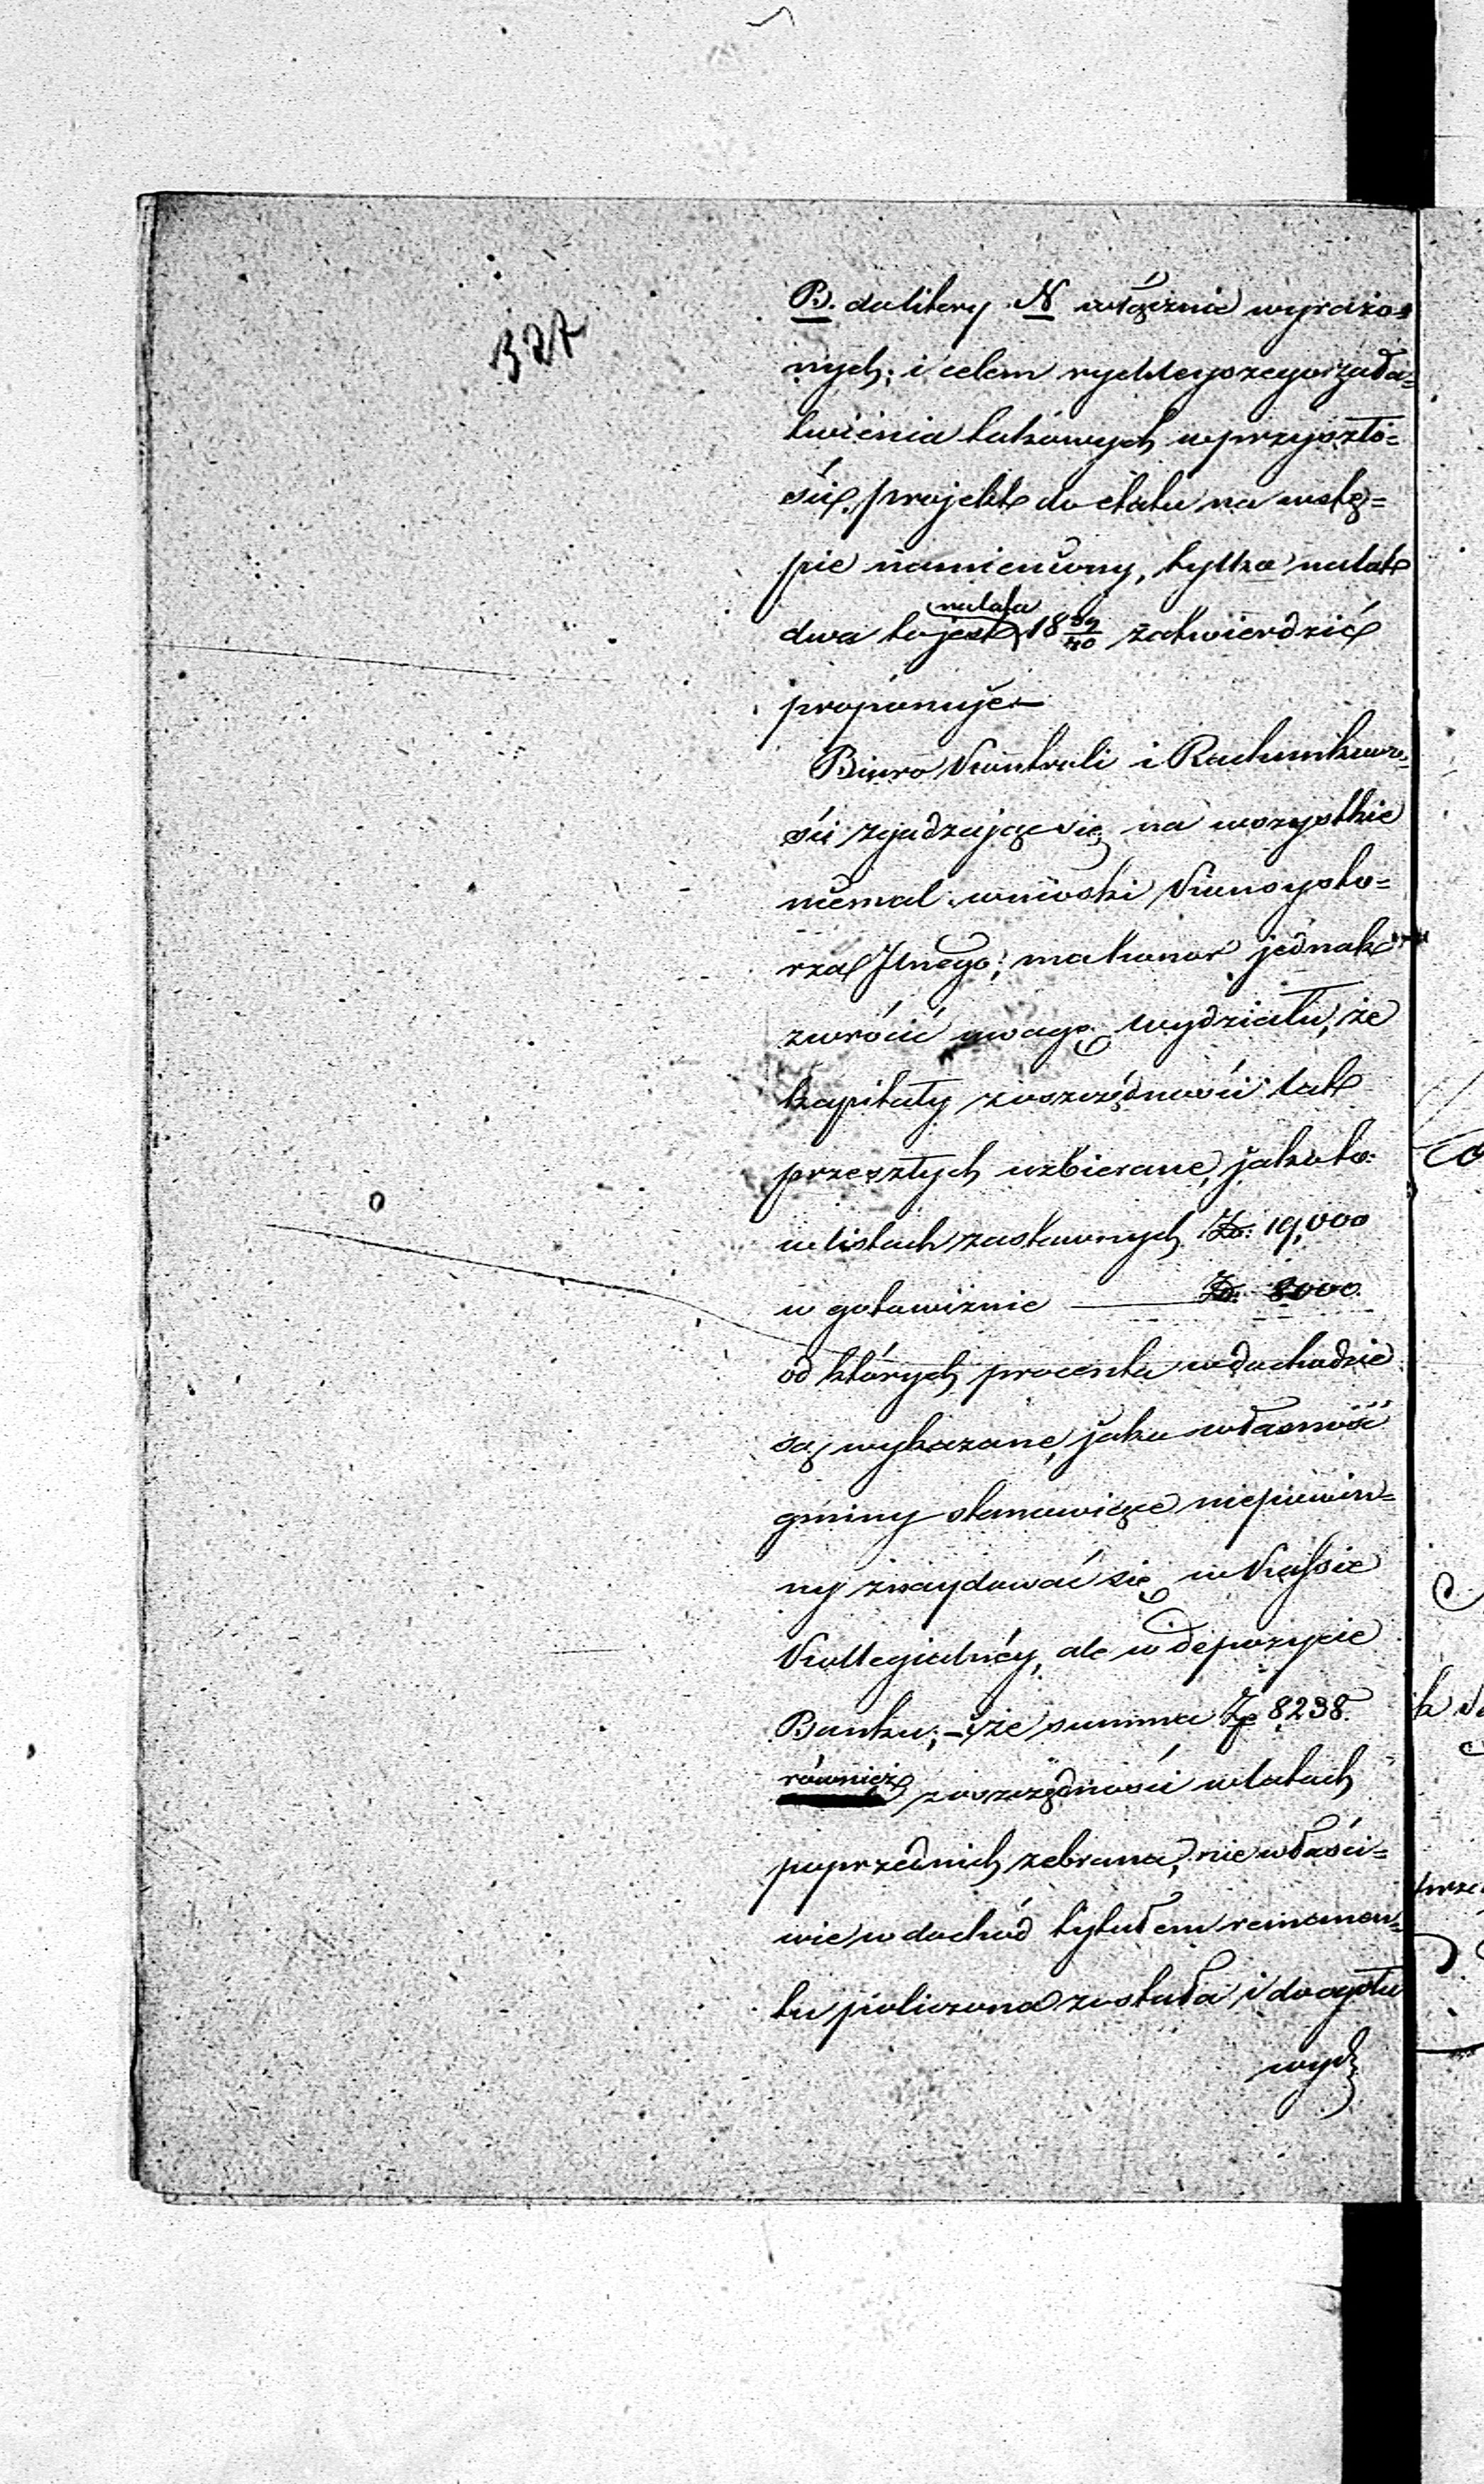 327
B. do litery N włącznie wyrażo=
nych; i celem rychleyszego zała=
twienia takowych w przyszło=
ści, projekt do etatu na wstę=
pie namieniony, tylko na lat
dwa to jest na lata 18 39/40 zatwierdzić
proponuje —
Biuro Kontroli i Rachunkowo=
ści zgadzając się na wszystkie
niemal wnioski Konsysto=
rza Jlnego; ma honor jednak
zwrócić uwagę wydziału, że
kapitały z oszczędności lat
przeszłych uzbierane, jako to:
w listach zastawnych Zł: 19,000
w gotowiznie — Zł: 8000.
od których procenta w dochodzie
są wykazane, jako własność
gminy stanowiące niepowin=
ny znaydować się w Kassie
Kollegialnéy, ale w depozycie
Banku; – i że summa Zp 8238.
również z oszczędności w latach
poprzednich zebrana, nie właści=
wie w dochód tytułem remanen=
tu policzona została i do ogółu
wyd